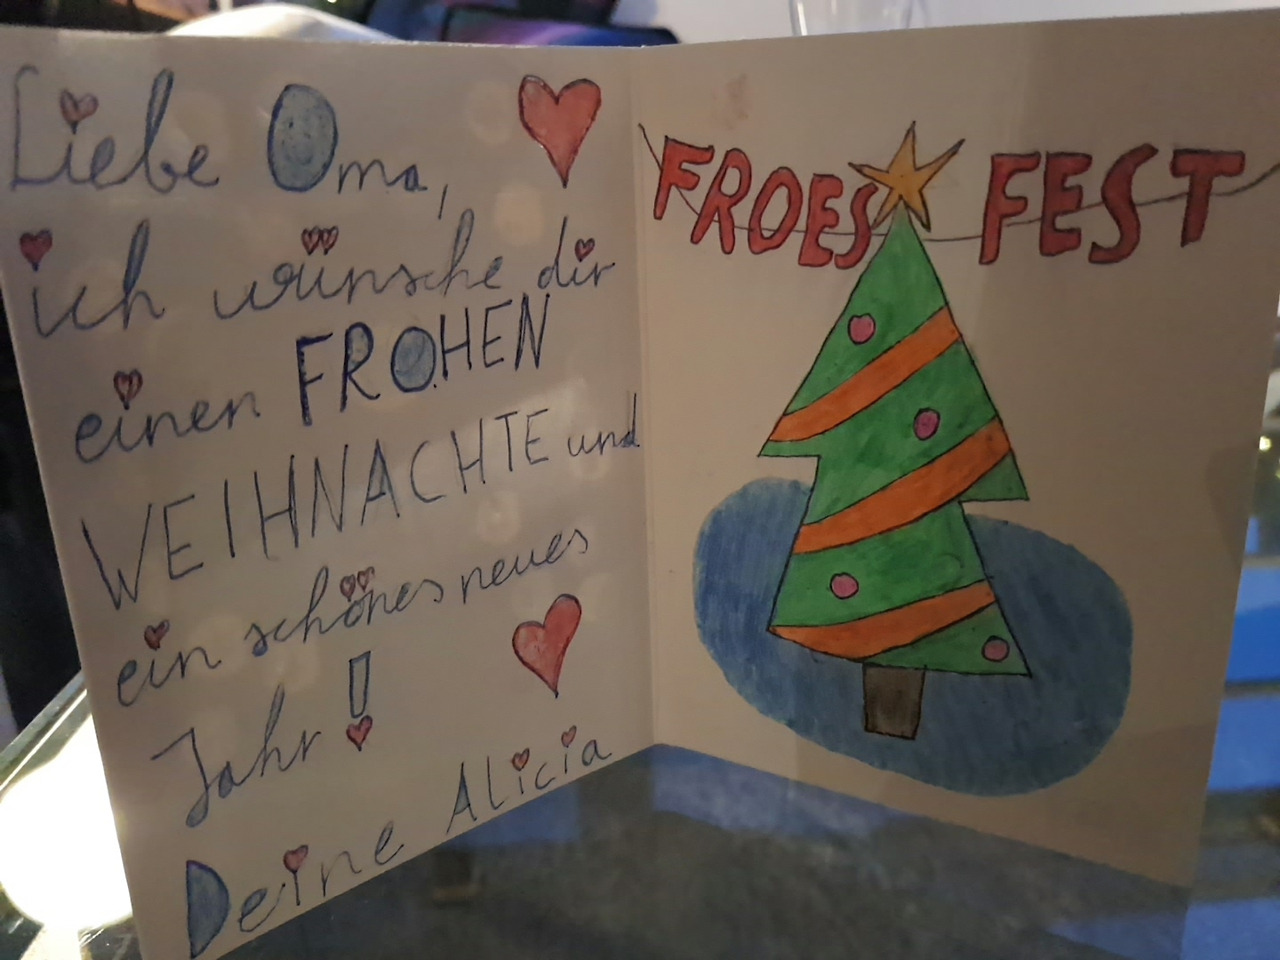 Liebe Oma,
ich wünsche dir
einen FROHEN
WEIHNACHTE und
ein schönes neues
Jahr!
Deine Alicia
FROES FEST